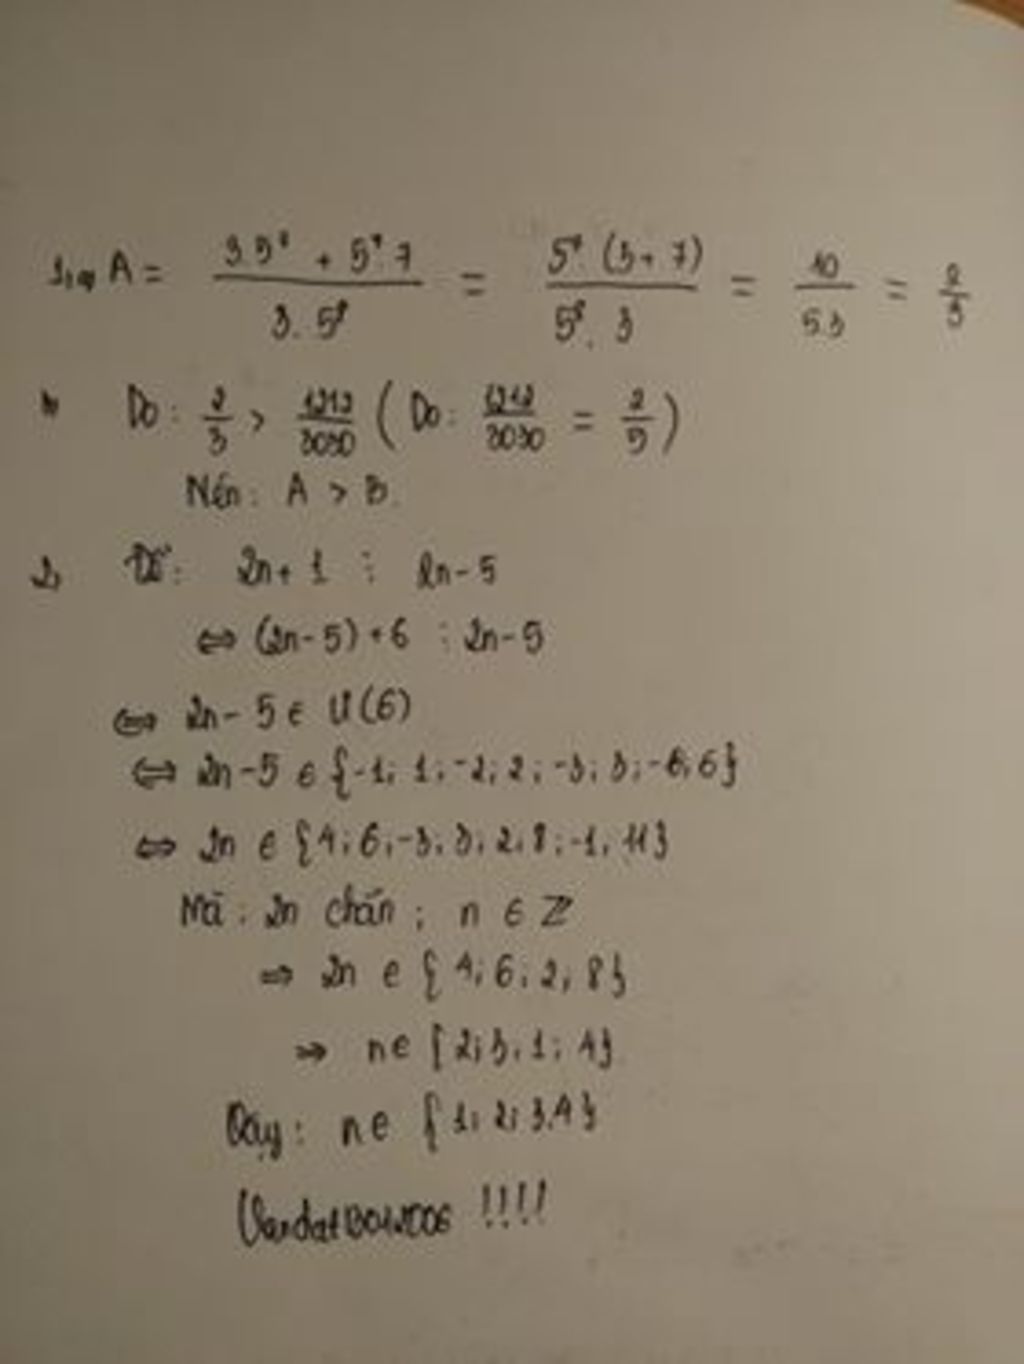 1, a, A = (3.5⁸ + 5⁷.7) / (3.5⁸) = 5⁷.(3+7) / (5⁸.3) = 10 / 5.3 = 2/3
b, Do: 2/3 > 1212/3030 (Do: 1212/3030 = 2/5)
Nên: A > B.
2, Để: 2n + 1 ⋮ 2n - 5
⇔ (2n - 5) + 6 ⋮ 2n - 5
⇔ 2n - 5 ∈ Ư(6)
⇔ 2n - 5 ∈ {-1; 1; -2; 2; -3; 3; -6; 6}
⇔ 2n ∈ {4; 6; -3; 3; 2; 8; -1; 11}
Mà: 2n chẵn; n ∈ Z
⇒ 2n ∈ {4; 6; 2; 8}
⇒ n ∈ {2; 3; 1; 4}
Vậy: n ∈ {1; 2; 3; 4}
!!!!